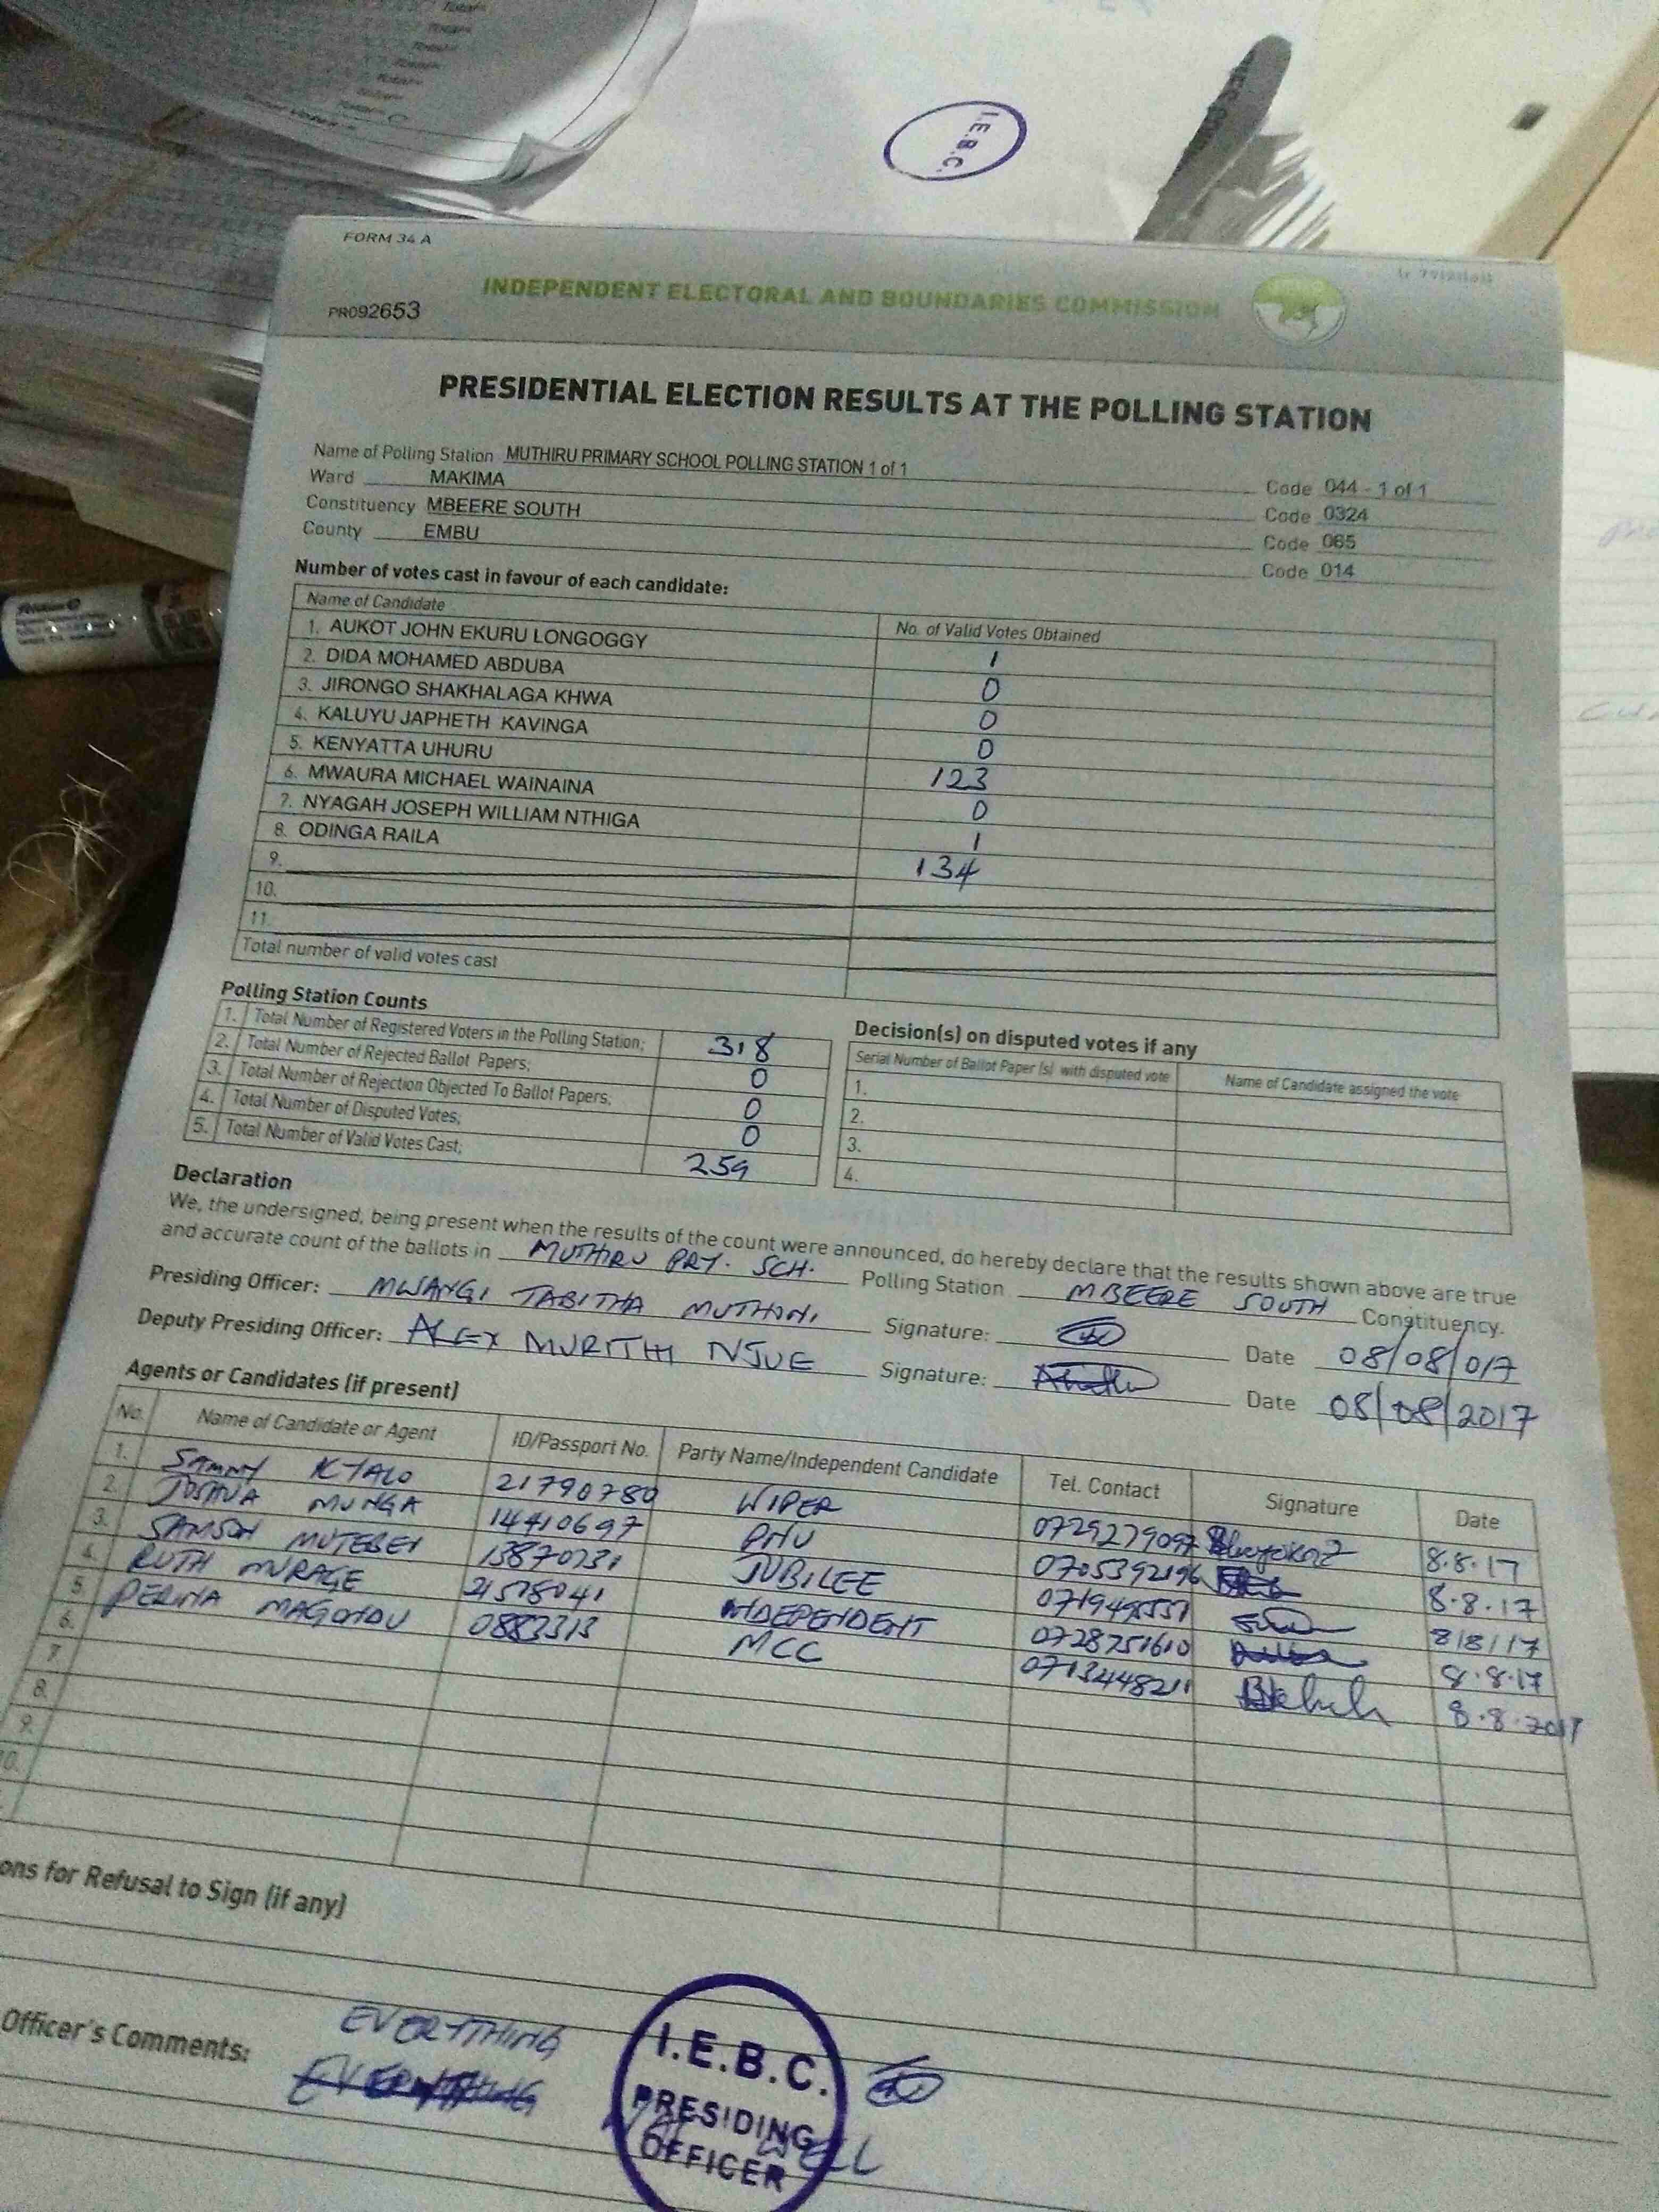 I.E.B.C.
FORM 34 A
PR092653
INDEPENDENT ELECTORAL AND BOUNDARIES COMMISSION
PRESIDENTIAL ELECTION RESULTS AT THE POLLING STATION
Name of Polling Station MUTHIRU PRIMARY SCHOOL POLLING STATION 1 of 1 Code 044 - 1 of 1
Ward MAKIMA Code 0324
Constituency MBEERE SOUTH Code 065
County EMBU Code 014
Number of votes cast in favour of each candidate:
Name of Candidate No. of Valid Votes Obtained
1. AUKOT JOHN EKURU LONGOGGY 1
2. DIDA MOHAMED ABDUBA 0
3. JIRONGO SHAKHALAGA KHWA 0
4. KALUYU JAPHETH KAVINGA 0
5. KENYATTA UHURU 123
6. MWAURA MICHAEL WAINAINA 0
7. NYAGAH JOSEPH WILLIAM NTHIGA 1
8. ODINGA RAILA 134
9.
10.
11.
Total number of valid votes cast
Polling Station Counts
1. Total Number of Registered Voters in the Polling Station; 318
2. Total Number of Rejected Ballot Papers; 0
3. Total Number of Rejection Objected To Ballot Papers; 0
4. Total Number of Disputed Votes; 0
5. Total Number of Valid Votes Cast; 259
Decision(s) on disputed votes if any
Serial Number of Ballot Paper (s) with disputed vote Name of Candidate assigned the vote
1.
2.
3.
4.
Declaration
We, the undersigned, being present when the results of the count were announced, do hereby declare that the results shown above are true
and accurate count of the ballots in MUTHIRU PRY. SCH. Polling Station MBEERE SOUTH Constituency.
Presiding Officer: MWANGI TABITHA MUTHONI Signature: Date 08/08/017
Deputy Presiding Officer: ALEX MURITHI NJUE Signature: Date 08/08/2017
Agents or Candidates (if present)
No. Name of Candidate or Agent ID/Passport No. Party Name/Independent Candidate Tel. Contact Signature Date
1. SAMMY KYALO 21790780 WIPER 0729279097 8.8.17
2. JOSHUA MUNGA 14410697 PNU 0705392196 8.8.17
3. SAMSON MUTEBEI 13870731 JUBILEE 8/8/17
4. RUTH MURAGE 21578041 INDEPENDENT 0728751610 8.8.17
5. MAGONDU 0883313 MCC 0713448211 8.8.2017
6.
7.
8.
9.
10.
ons for Refusal to Sign (if any)
Officer's Comments: EVERYTHING
EVERYTHING
WELL
I.E.B.C.
PRESIDING
OFFICER